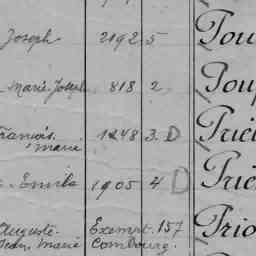 Joseph 2192 5 Pou
Marie Joseph 818 2 Poup
François 1248 3. D Prié
Marie
Emile 1905 4 D Prié
Auguste. Exempt. 157 Prio
Jean Marie Combourg.